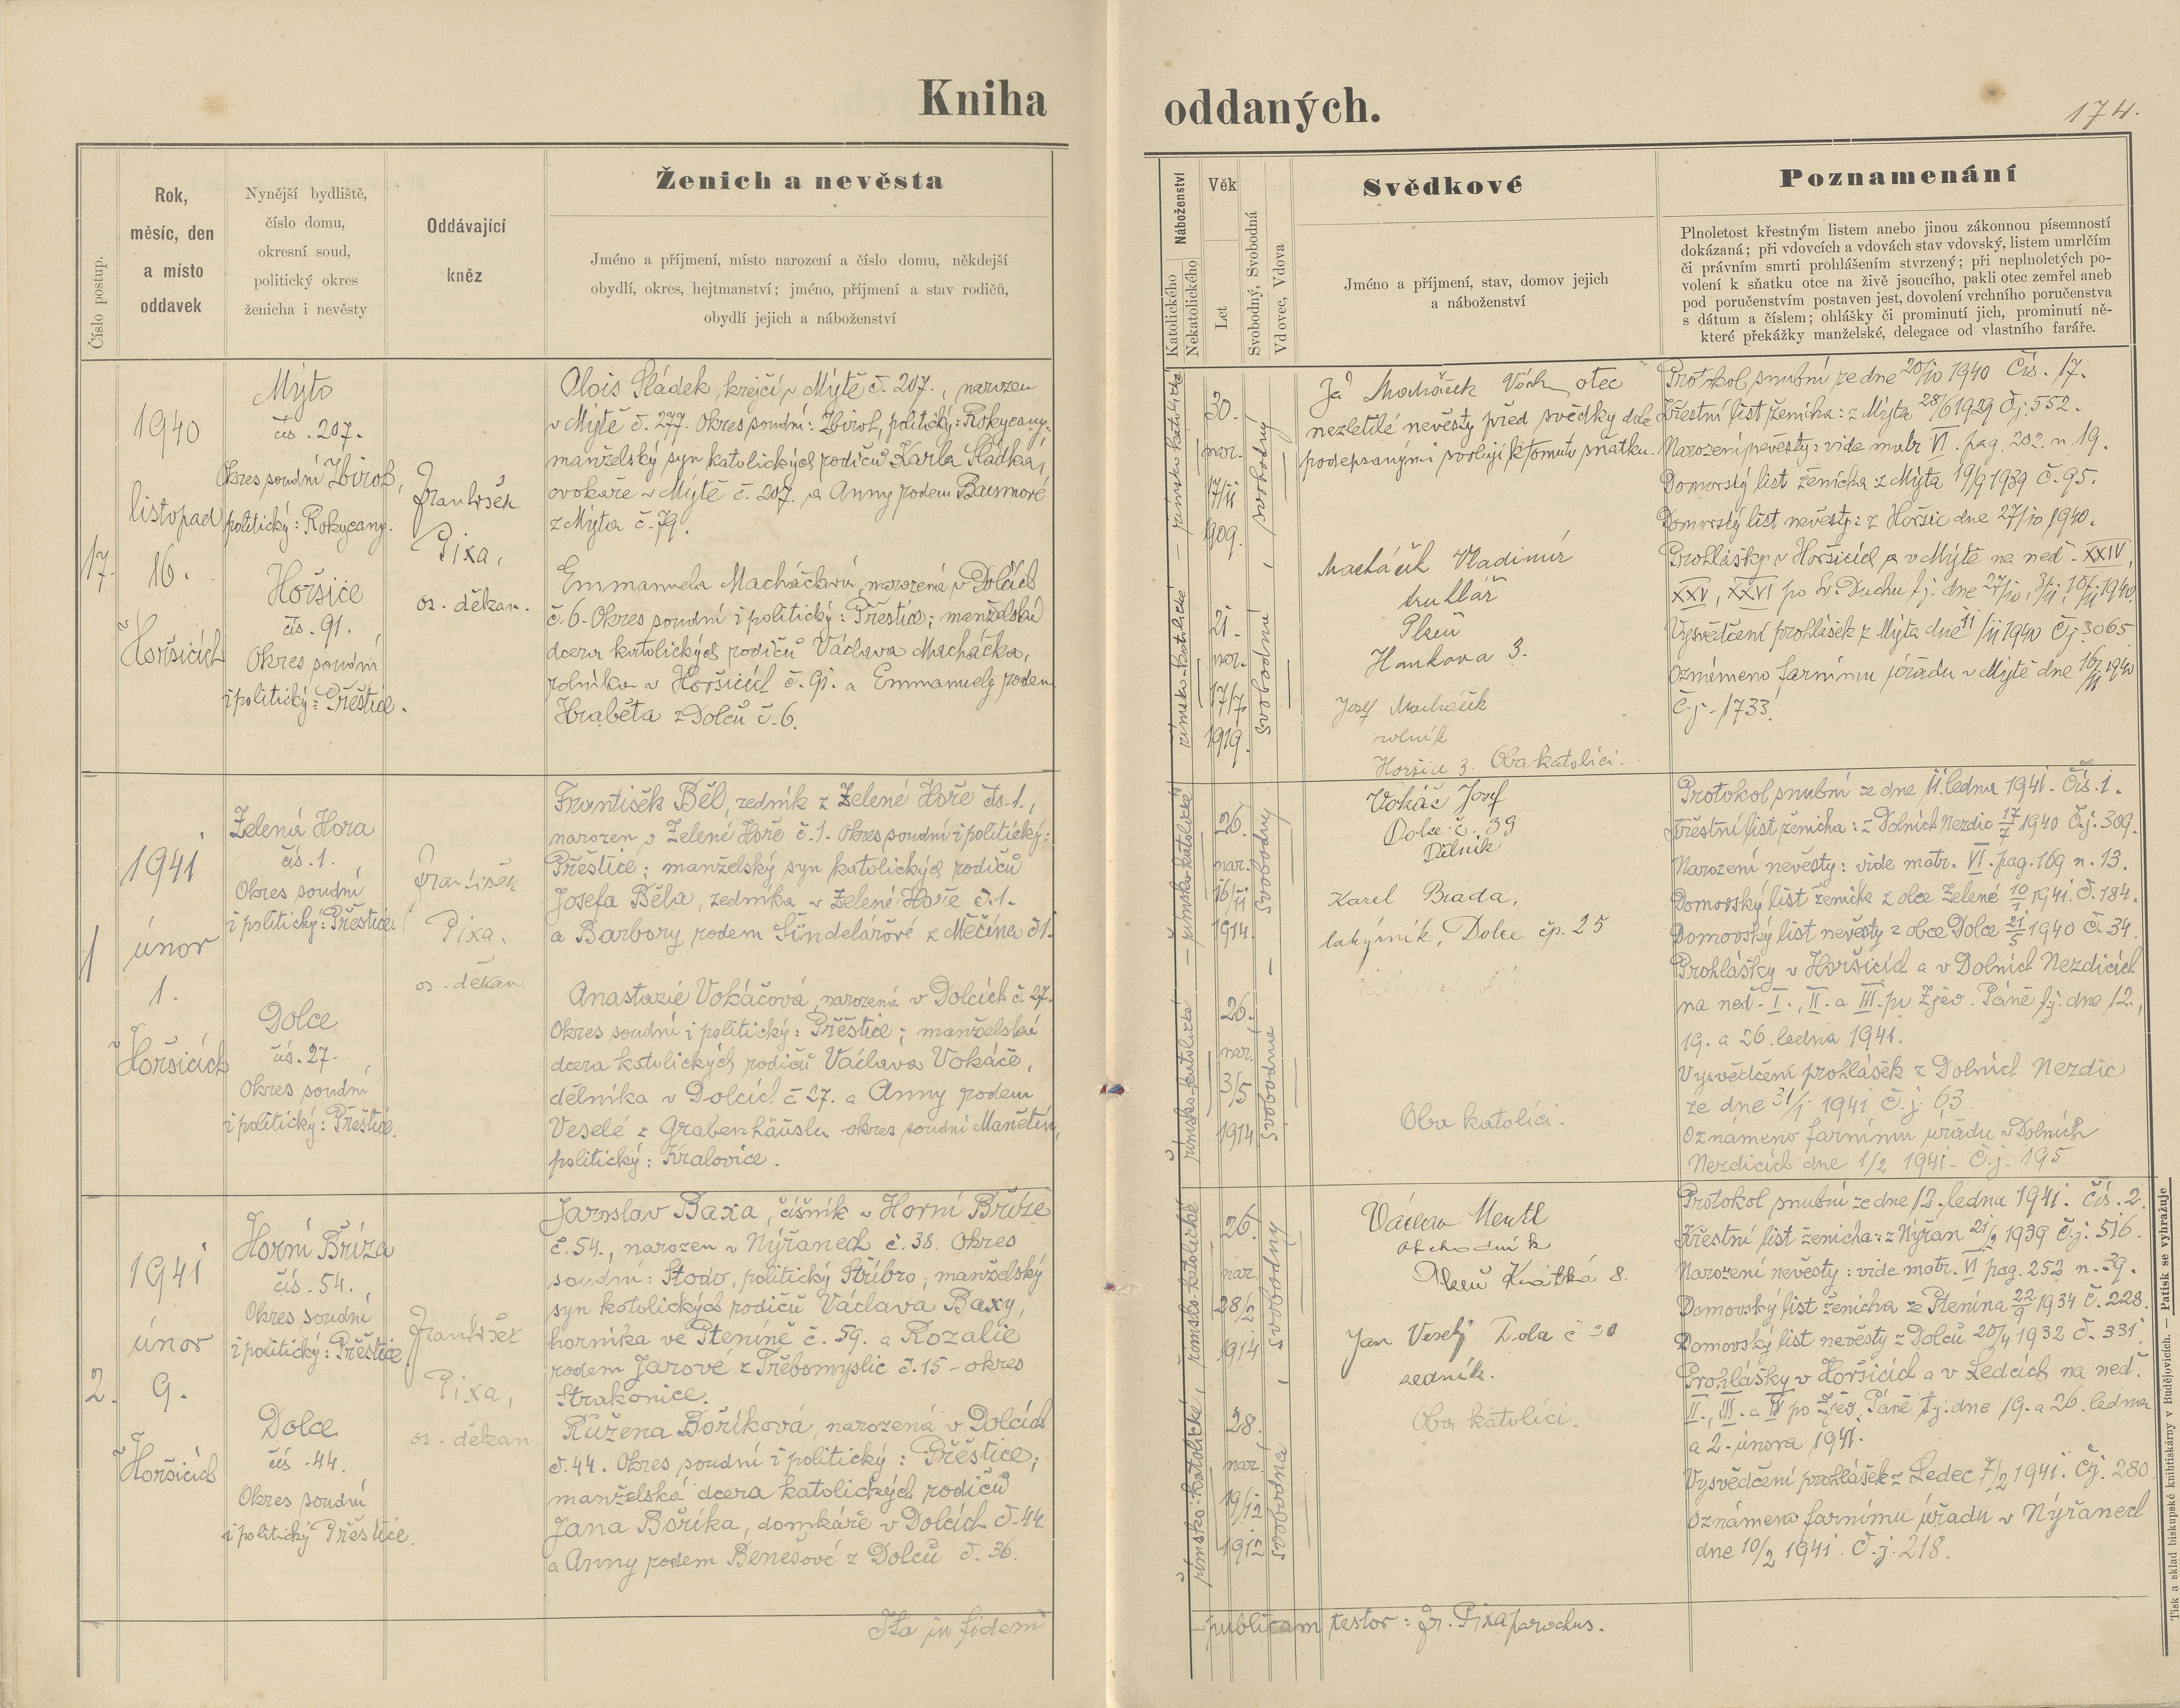 Kniha oddaných.
174.
Číslo postup.
Rok,
měsíc, den
a místo
oddavek
Nynější bydliště,
číslo domu,
okresní soud,
politický okres
ženicha i nevěsty
Oddávající
kněz
Ženich a nevěsta
Jméno a příjmení, místo narození a číslo domu, někdejší
obydlí, okres, hejtmanství; jméno, příjmení a stav rodičů,
obydlí jejich a náboženství
Náboženství
Katolického
Nekatolického
Věk
Let
Svobodný, Svobodná
Vdovec, Vdova
Svědkové
Jméno a příjmení, stav, domov jejich
a náboženství
Poznamenání
Plnoletost křestným listem anebo jinou zákonnou písemností
dokázaná; při vdovcích a vdovách stav vdovský, listem umrlčím
či právním smrti prohlášením stvrzený; při neplnoletých po-
volení k sňatku otce na živě jsoucího, pakli otec zemřel aneb
pod poručenstvím postaven jest, dovolení vrchního poručenstva
s dátum a číslem; ohlášky či prominutí jich, prominutí ně-
které překážky manželské, delegace od vlastního faráře.
17.
1940
listopad
16.
Horšicích
Mýto
čís. 207.
Okres soudní Zbiroh,
politický: Rokycany.
Horšice
čís. 91.
Okres soudní
i politický: Přeštice.
František
Pixa,
os. děkan.
Alois Sládek, krejčí v Mýtě č. 207., narozen
v Mýtě č. 277. Okres soudní: Zbiroh, politický: Rokycany;
manželský syn katolických rodičů Karla Sládka,
cvokaře v Mýtě č. 207. a Anny rodem Baumové
z Mýta č. 79.
Emmanuela Macháčková, narozená v Dolcích
č. 6. Okres soudní i politický: Přeštice; manželská
dcera katolických rodičů Václava Macháčka,
rolníka v Horšicích č. 91. a Emmanuely rodem
Hraběta z Dolců č. 6.
římsko-katolické – římsko katolické
30.
nar.
17/11
1909.
21.
nar.
17/7.
1919.
svobodná, svobodný
Já Macháček Václ. otec
nezletilé nevěsty před svědky dole
podepsanými svoluji k tomuto sňatku.
Macháček Vladimír
truhlář
Plzeň
Hankova 3.
Josef Macháček
rolník
Horšice 3. Oba katolíci.
Protokol snubní ze dne 20/10 1940 Čís. 17.
Křestní list ženicha: z Mýta 28/6 1929 Č.j. 552.
Narození nevěsty: vide matr. VI. pag. 202. n. 19.
Domovský list ženicha z Mýta 19/9 1939 č. 95.
Domovský list nevěsty: z Horšic dne 27/10 1940.
Prohlášky v Horšicích a v Mýtě na neď. XXIV,
XXV, XXVI po sv. Duchu t.j. dne 27/10, 3/11, 10/11 1940.
Vysvědčení prohlášek z Mýta dne 11/11 1940 Č.j. 3065
Oznámeno farnímu úřadu v Mýtě dne 16/11 1940
Č.j. 1733.
1
1941
únor
1.
Horšicích
Zelená Hora
čís. 1.
Okres soudní
i politický: Přeštice.
Dolce
čís. 27.
Okres soudní
i politický: Přeštice.
František
Pixa,
os. děkan.
František Běl, zedník z Zelené Hoře čís. 1.,
narozen v Zelené Hoře č. 1. Okres soudní i politický:
Přeštice; manželský syn katolických rodičů
Josefa Běla, zedníka v Zelené Hoře č. 1.
a Barbory rodem Šindelářové z Měčína č 1.
Anastazie Vokáčová, narozená v Dolcích č. 27.
Okres soudní i politický: Přeštice; manželská
dcera katolických rodičů Václava Vokáče,
dělníka v Dolcích č 27. a Anny rodem
Veselé z Grabenhäuslu okres soudní Manětín,
politický: Kralovice.
římsko-katolické – římsko-katolické
26.
nar.
16/11
1914.
26.
nar.
3/5
1914
svobodná – svobodný
Vokáč Josef
Dolce č. 39
Dělník
Karel Brada,
lakýrník, Dolce čp. 25
Oba katolíci.
Protokol snubní ze dne 11. ledna 1941. Čís. 1.
Křestní list ženicha: z Dolních Nezdic 17/7 1940 Č.j. 309.
Narození nevěsty: vide matr. VI. pag. 169 n. 13.
Domovský list ženicha z obce Zelené 10/1 1941. Č. 184.
Domovský list nevěsty z obce Dolce 21/5 1940 Č. 34.
Prohlášky v Horšicích a v Dolních Nezdicích
na neď. I., II. a III. po Zjev. Páně t.j. dne 12.,
19. a 26. ledna 1941.
Vysvědčení prohlášek z Dolních Nezdic
ze dne 31/1 1941 č.j. 63.
Oznámeno farnímu úřadu v Dolních
Nezdicích dne 1/2 1941. Č.j. 195
2.
1941
únor
9.
Horšicích
Horní Bříza
čís. 54.
Okres soudní
i politický: Přeštice.
Dolce
čís. 44.
Okres soudní
i politický Přeštice.
František
Pixa,
os. děkan
Jaroslav Baxa, číšník v Horní Bříze
č. 54., narozen v Nýřanech č. 38. Okres
soudní: Stodo, politický Stříbro; manželský
syn katolických rodičů Václava Baxy,
horníka ve Pteníně č. 59. a Rozalie
rodem Jarové z Třebomyslic č. 15 – okres
Strakonice.
Růžena Boříková, narozená v Dolcích
č. 44. Okres soudní i politický: Přeštice;
manželská dcera katolických rodičů
Jana Boříka, domkáře v Dolcích č. 44
a Anny rodem Benešové z Dolců č. 36.
římsko-katolické, římsko-katolické
26.
nar.
28/2
1914
28.
nar.
19/12
1912
svobodná, svobodný
Václav Mentl
obchodník
Plzeň Krátká 8.
Jan Veselý č 30
zedník.
Oba katolíci.
Protokol snubní ze dne 12. ledna 1941. čís. 2.
Křestní list ženicha: z Nýřan 21/2 1939 č.j. 516.
Narození nevěsty: vide matr. VI pag. 252 n. 39.
Domovský list ženicha ze Ptenína 22/9 1934 č. 228.
Domovský list nevěsty z Dolců 20/4 1932 č. 331.
Prohlášky v Horšicích a v Ledcích na neď.
II., III. a IV po Zjev. Páně t.j. dne 19. a 26. ledna
a 2. února 1941.
Vysvědčení prohlášek z Ledec 7/2 1941. Čj. 280
Oznámeno farnímu úřadu v Nýřanech
dne 10/2 1941. Č.j. 218.
Ita in fidem publicam testor: Fr. Pixa parochus.
Tisk a sklad biskupské knihtiskárny v Budějovicích. — Patisk se vyhražuje